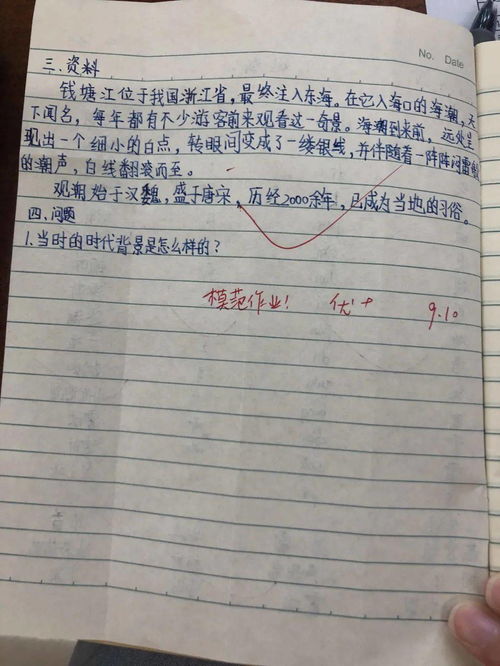 No.    Date
三、资料
钱塘江位于我国浙江省，最终注入东海。在它入海口的海潮，天
下闻名，每年都有不少游客前来观看这一奇景。海潮到来前，远处呈
现出一个细小的白点，转眼间变成了一缕银线，并伴随着一阵阵闷雷般
的潮声，白线翻滚而至。
观潮始于汉魏，盛于唐宋，历经2000余年，已成为当地的习俗。
四、问题
1.当时的时代背景是怎么样的？
模范作业！ 优+ 9.10